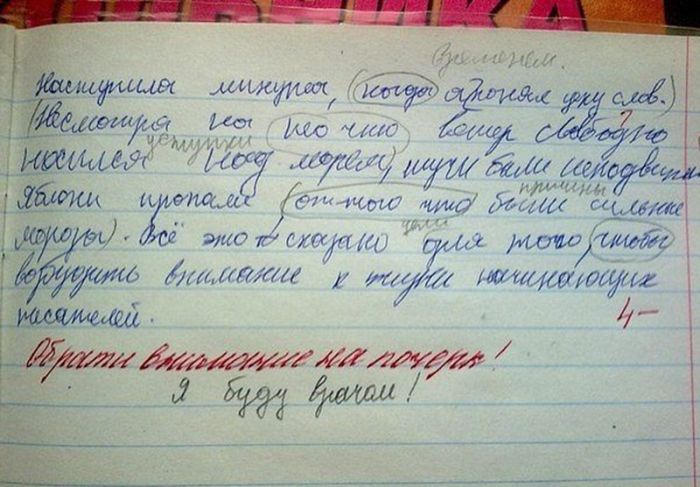 ВНИКА
временем.
Наступила минута, (когда я понял цену слов.)
(Несмотря на то что ветер свободно
уступки
носился над морем), тучи были неподвижны
причины
Яблони пропали (от того что были сильные
цели
морозы). Всё это сказано для того, чтобы
возбудить внимание к жизни начинающих
писателей.
4-
Обрати внимание на почерк!
Я буду врачом!